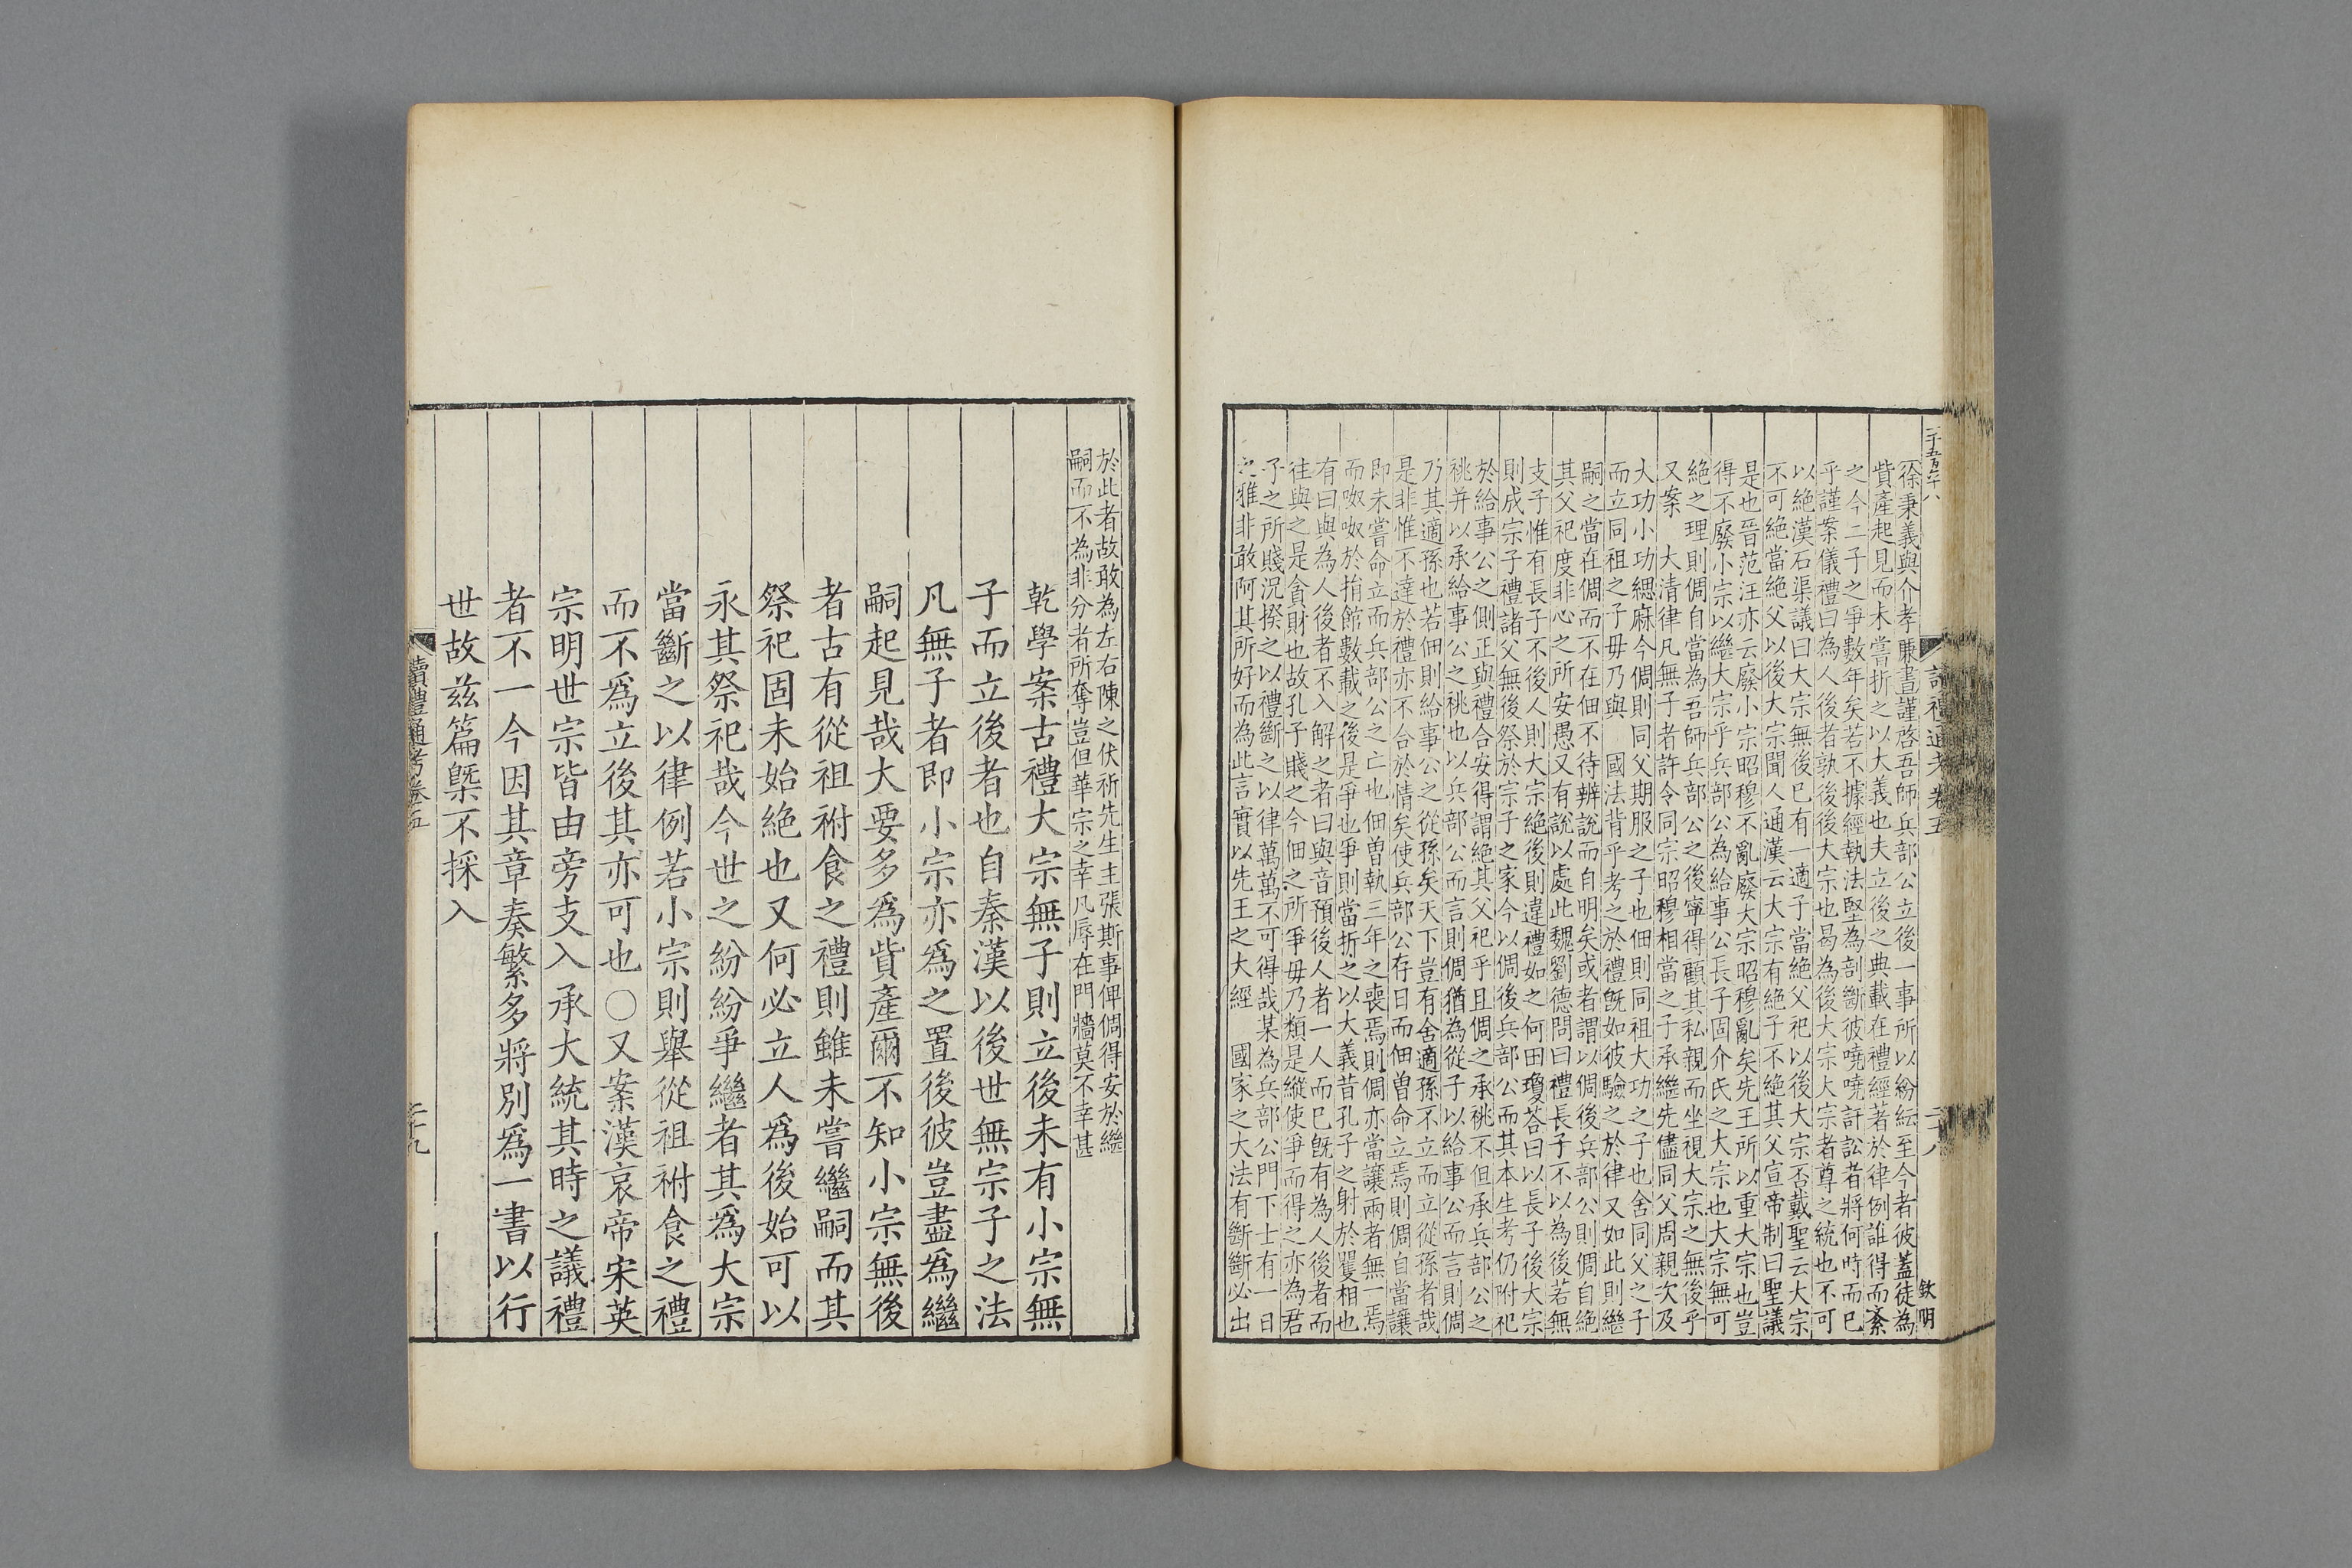 徐秉義與介孝廉書謹啓吾師兵部公立後一事所以紛紜至今者彼蓋徒為
貲產起見而未嘗折之以大義也夫立後之典載在禮經著於律例誰得而紊
之今二子之爭數年矣若不據經執法堅為剖斷彼嘵嘵訐訟者將何時而已
乎謹案儀禮曰為人後者孰後後大宗也曷為後大宗大宗者尊之統也不可
以絕漢石渠議曰大宗無後已有一適子當絕父祀以後大宗否戴聖云大宗
不可絕當絕父以後大宗聞人通漢云大宗有絕子不絕其父宣帝制曰聖議
是也晉范汪亦云廢小宗昭穆不亂廢大宗昭穆亂矣先王所以重大宗也豈
得不廢小宗以繼大宗乎兵部公為給事公長子固介氏之大宗也大宗無可
絕之理則倜自當為吾師兵部公之後寧得顧其私親而坐視大宗之無後乎
又案　大清律凡無子者許令同宗昭穆相當之子承繼先儘同父周親次及
大功小功緦麻今倜則同父期服之子也佃則同祖大功之子也舍同父之子
而立同祖之子毋乃與　國法背乎考之於禮既如彼驗之於律又如此則繼
嗣之當在倜而不在佃不待辨說而自明矣或者謂以倜後兵部公則倜自絕
其父祀度非心之所安愚又有說以處此魏劉德問曰禮長子不以為後若無
支子惟有長子不後人則大宗絕後則違禮如之何田瓊答曰以長子後大宗
則成宗子禮諸父無後祭於宗子之家今以倜後兵部公而其本生考仍附祀
於給事公之側正與禮合安得謂絕其父祀乎且倜之承祧不但承兵部公之
祧并以承給事公之祧也以兵部公而言則倜猶為從子以給事公而言則倜
乃其適孫也若佃則給事公之從孫矣天下豈有舍適孫不立而立從孫者哉
是非惟不達於禮亦不合於情矣使兵部公存日而佃曾命立焉則倜自當讓
即未嘗命立而兵部公之亡也佃曾執三年之喪焉則倜亦當讓兩者無一焉
而呶呶於捐館數載之後是爭也爭則當折之以大義昔孔子之射於矍相也
有曰與為人後者不入解之者曰與音預後人者一人而已既有為人後者而
往與之是貪財也故孔子賤之今佃之所爭毋乃類是縱使爭而得之亦為君
子之所賤況揆之以禮斷之以律萬萬不可得哉某為兵部公門下士有一日
之雅非敢阿其所好而為此言實以先王之大經　國家之大法有斷斷必出
於此者故敢為左右陳之伏祈先生主張斯事俾倜得安於繼
嗣而不為非分者所奪豈但華宗之幸凡辱在門牆莫不幸甚
乾學案古禮大宗無子則立後未有小宗無
子而立後者也自秦漢以後世無宗子之法
凡無子者即小宗亦爲之置後彼豈盡爲繼
嗣起見哉大要多爲貲產爾不知小宗無後
者古有從祖祔食之禮則雖未嘗繼嗣而其
祭祀固未始絕也又何必立人爲後始可以
永其祭祀哉今世之紛紛爭繼者其爲大宗
當斷之以律例若小宗則舉從祖祔食之禮
而不爲立後其亦可也○又案漢哀帝宋英
宗明世宗皆由旁支入承大統其時之議禮
者不一今因其章奏繁多將別爲一書以行
世故茲篇槩不採入
讀禮通考卷五
二十九
讀禮通考卷五
二十八
欽明